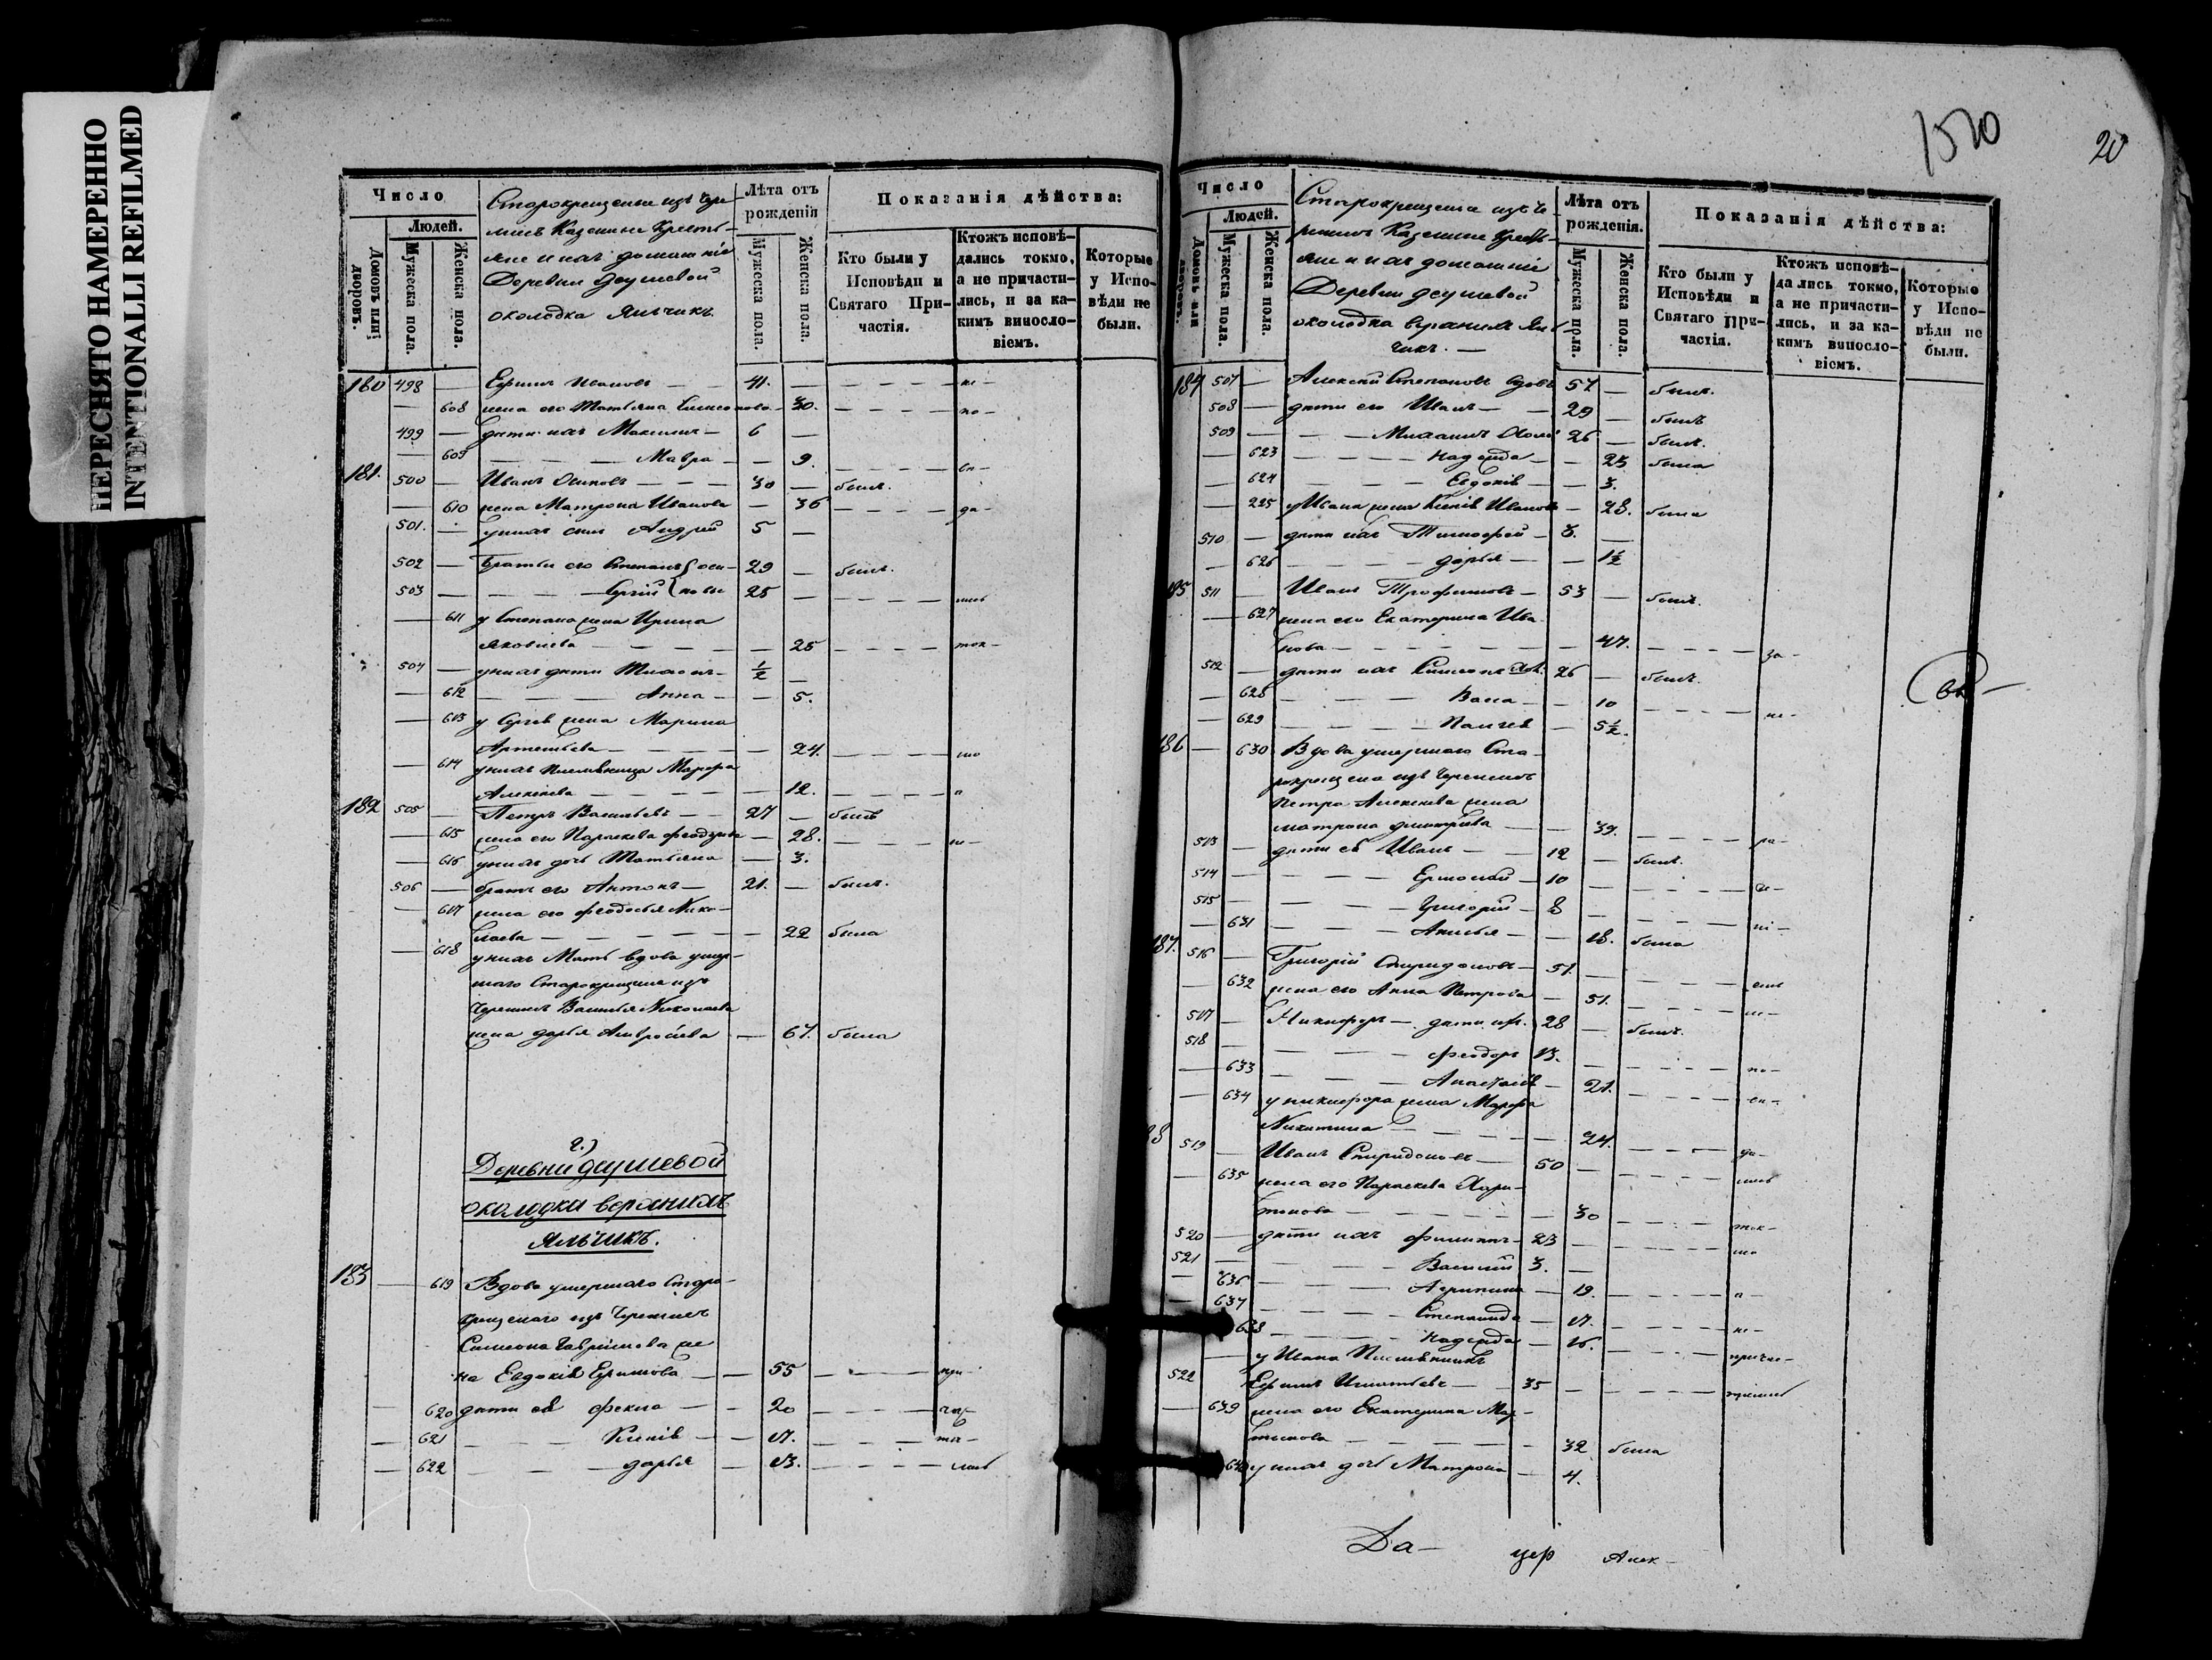 ПЕРЕСНЯТО НАМЕРЕННО
INTENTIONALLI REFILMED
1520
20
Число
Людей.
Домовъ или дворовъ.
Мужеска пола.
Женска пола.
Старокрещены изъ Чере-
мисъ Казенные Кресть-
яне и ихъ домашніе
Деревни
околодка Яльчикъ
Лѣта отъ
рожденія
Мужеска пола.
Женска пола.
Показанія дѣйства:
Кто были у
Исповѣди и
Святаго При-
частія.
Ктожъ исповѣ-
дались токмо,
а не причасти-
лись, и за ка-
кимъ виносло-
віемъ.
Которые
у Испо-
вѣди не
были.
180 498 Ефимъ Ивановъ 41. не-
608 жена его Татьяна 30. по-
499 дети ихъ Максимъ 6
609 Мавра 9. сп-
181. 500 Иванъ Осиповъ 30 былъ.
610 жена Матрона Иванова 36 да-
501. у нихъ сынъ Андрей 5
502 Братья его Степанъ Оси- 29 былъ.
503 Сергій повы 25 лись
611 у Степана жена Ирина
Яковлева 25 ток-
504 у нихъ дети 1/2
612 Анна 5.
613 у Сергѣя жена Марина
Артемьева 24. мо
614 у нихъ Марфа
Алексѣева 12. а
182 505 Петръ Васильевъ 27 былъ
615 жена его Параскева 28. не-
616 у нихъ дочь Татьяна 3.
506 братъ его Антонъ 21. былъ.
617 жена его Феодосья Нико-
лаева 22 была
618 у нихъ Мать вдова умер-
шаго Старокрещена изъ
Черемисъ Василья Николаева
жена Дарья 67. была
2.)
Деревни
околодка верхнихъ
Яльчикъ.
183 619 Вдова умершаго Старо-
крещенаго изъ Черемисъ
Симеона Гаврилова же
на Евдокія Ефимова 55 при-
620 дети ея Фекла 20 час-
621 Ксенія 17. ти-
622 Дарья 13. лись
Число
Людей.
Домовъ или дворовъ.
Мужеска пола.
Женска пола.
Старокрещены изъ Че-
ремисъ Казенные Кресть-
яне и ихъ домашніе
Деревни
околодка верхнихъ Яль-
чикъ.
Лѣта отъ
рожденія.
Мужеска пола.
Женска пола.
Показанія дѣйства:
Кто были у
Исповѣди и
Святаго При-
частія.
Ктожъ исповѣ-
дались токмо,
а не причасти-
лись, и за ка-
кимъ виносло-
віемъ.
Которые
у Испо-
вѣди не
были.
184 507 Алексѣй Степановъ вдовъ 57 былъ.
508 дети его Иванъ 29 былъ
509 Михаилъ Холос 26 былъ.
623 Надежда 23 была
624 Евдокія 3.
225 у Ивана жена Ксенія Иванова 28. была
510 дети ихъ Тимофей 3.
626 Дарья 1 1/2
185 511 Иванъ Трофимовъ 53 былъ.
627 жена его Екатерина Ива-
нова 47. за-
512 дети ихъ Симеонъ Хол. 26 былъ.
628 Васса 10 не-
629 5 1/2.
186 630 Вдова умершаго Ста-
рокрещена изъ Черемисъ
Петра Алексѣева жена
Матрона Дмитріева 39. ра-
513 дети ея Иванъ 12 былъ.
514 Ермолай 10
515 Григорій 8 ні-
631 Анисья 18. была
187. 516 Григорій Спиридоновъ 51. емъ
632 жена его Анна Петрова 51. не-
507 Никифоръ дети ихъ. 28 былъ.
518 Феодоръ 13. по-
633 Анастасія 21. сп-
634 у Никифора жена Марфа
Никитина 24. да-
88 519 Иванъ Спиридоновъ 50 лись
635 жена его Параскева Хари-
тонова 30 ток-
520 дети ихъ Филиппъ 23 мо
521 Василій 3.
636 Агрипина 19. а-
637 Степанида 17. не-
638 Надежда 16. причас-
у Ивана
522 Ефимъ Игнатьевъ 35 тились
639 жена его Екатерина Мар-
тынова 32 была
640 у нихъ дочь Матрона 4.
Да- цер Алек-